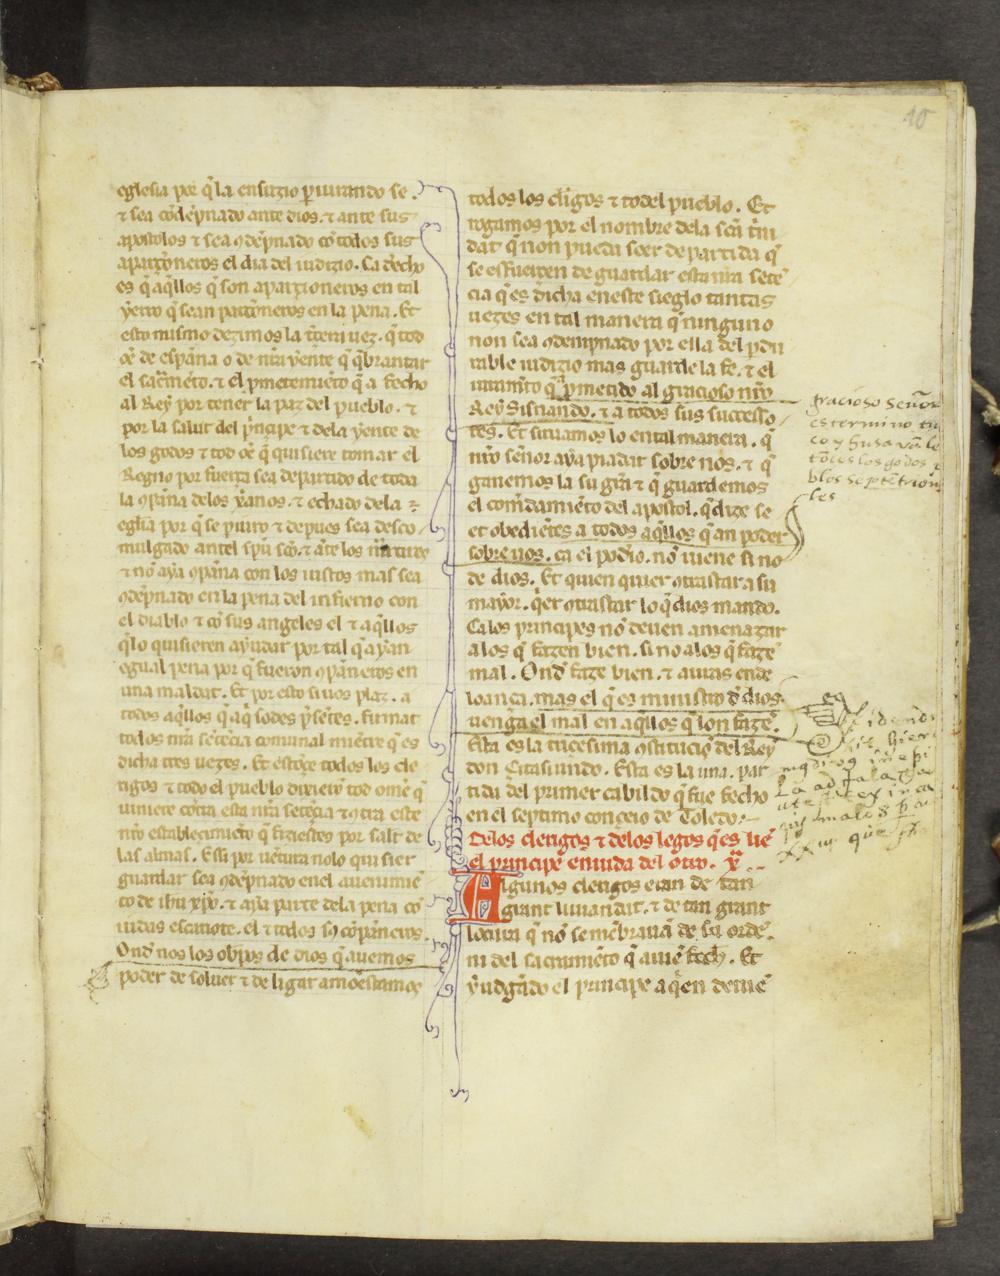 10
eglesia por q̃ la ensuzio ꝑiurando se.
⁊ sea cõdẽpnado ante dios. ⁊ ante sus
apostolos ⁊ sea ꝯdẽpnado cõ todos sus
aparçoneros el dia del iudizio. Ca derecho
es q̃ aq̃llos q̃ son aparzioneros en tal
yerro q̃ sean parçoneros en la pena. Et
esto mismo dezimos la tercera uez. q̃ tod
oẽ de espãna o de nr̃a yente q̃ q̃brantar
el sacr̃mẽto. ⁊ el ꝓmetemiẽto q̃ a fecho
al Rey por tener la paz del pueblo. ⁊
por la salut del p̃ncipe ⁊ dela yente de
los godos ⁊ tod oẽ q̃ quisiere tomar el
Regno por fuerça sea departido de toda
la ꝯpãna delos xp̃anos. ⁊ echado dela
egłia por q̃ se ꝑiuro ⁊ depues sea desco
mulgado antel sp̃u sc̃o. ⁊ ãte los martires
⁊ nõ aya ꝯpãna con los iustos mas sea
ꝯdẽpnado en la pena del infierno con
el diablo ⁊ cõ sus angeles el ⁊ aq̃llos
q̃ lo quisieren ayudar por tal q̃ ayan
egual pena por q̃ fueron ꝯpãneros en
una maldat. Et por esto si uos plaz. a
todos aq̃llos q̃ aq̃ sodes p̃sẽtes. firmat
todos nr̃a sẽtẽcia comunal miẽtre q̃ es
dicha tres uezes. Et estõçe todos los cle
rigos ⁊ todo el pueblo dixierõ tod ome q̃
uiniere cõtra esta nr̃a sẽtẽcia ⁊ ꝯtra este
nr̃o establecimiẽto q̃ fiziestes por salt de
las almas. Essi por uẽtura nolo quisier
guardar sea ꝯdẽpnado enel auenimiẽ
to de ih̃u xp̃o. ⁊ aya parte dela pena cõ
iudas escariote. el ⁊ todos sꝯ cõpãneros.
Onđ nos los obp̃os de dios q̃ auemos
poder de soluer ⁊ de ligar amõestamos
todos los clir̃gos ⁊ todel pueblo. Et
rogamos por el nombre dela scã tĩni
dat q̃ non pueda seer departida q̃
se esfuerçen de guardar esta nr̃a sẽtẽ
cia q̃ es dicha en este sieglo tantas
uezes en tal manera q̃ ninguno
non sea ꝯdempnado por ella del ꝑdu
rable iudizio mas guarde la fe. ⁊ el
iuramẽto q̃ ꝓmetido al gracioso nr̃o
Rey Sisnando. ⁊ a todos sus successo
res. Et siruamos lo en tal manera. q̃
nr̃o señor aya piadat sobre nos. ⁊ q̃
ganemos la su grã ⁊ q̃ guardemos
el com̃damiẽto del apostol. q̃ dize se
et obediẽtes a todos aq̃llos q̃ an poder
sobre uos. ca el podr̃io. nõ uiene si no
de dios. Et quien quier ꝯtrastar a su
mayor. q̃er ꝯtrastar lo q̃ dios mando.
Ca los principes nõ deuen amenazar
a los q̃ fazen bien. si no a los q̃ fazẽ
mal. Onđ faze bien. ⁊ auras ende
loança. mas el q̃ es ministro đ dios.
uenga el mal en aq̃llos q̃ lon fazẽ.
Esta es la tricesima ꝯstituciõ del Rey
don Citasiundo. Esta es la una. par
tida del primer cabildo q̃ fue fecho
en el septimo conçeio de Toledo:-
Delos clerigos ⁊ delos legos q̃ es liẽ
el principe en uida del otro. x̃...
Algunos clerigos eran de tan
grant liuiandat. ⁊ de tan grant
locura q̃ nõ se mẽbrauã de su ordẽ.
ni del sacramiẽto q̃ auiẽ fech. Et
yudgãdo el principe a q̃en deuiẽ
gracioso señor
es termino tu
co y husauã le
tõces los godos ⁊
blos septẽtrion
les